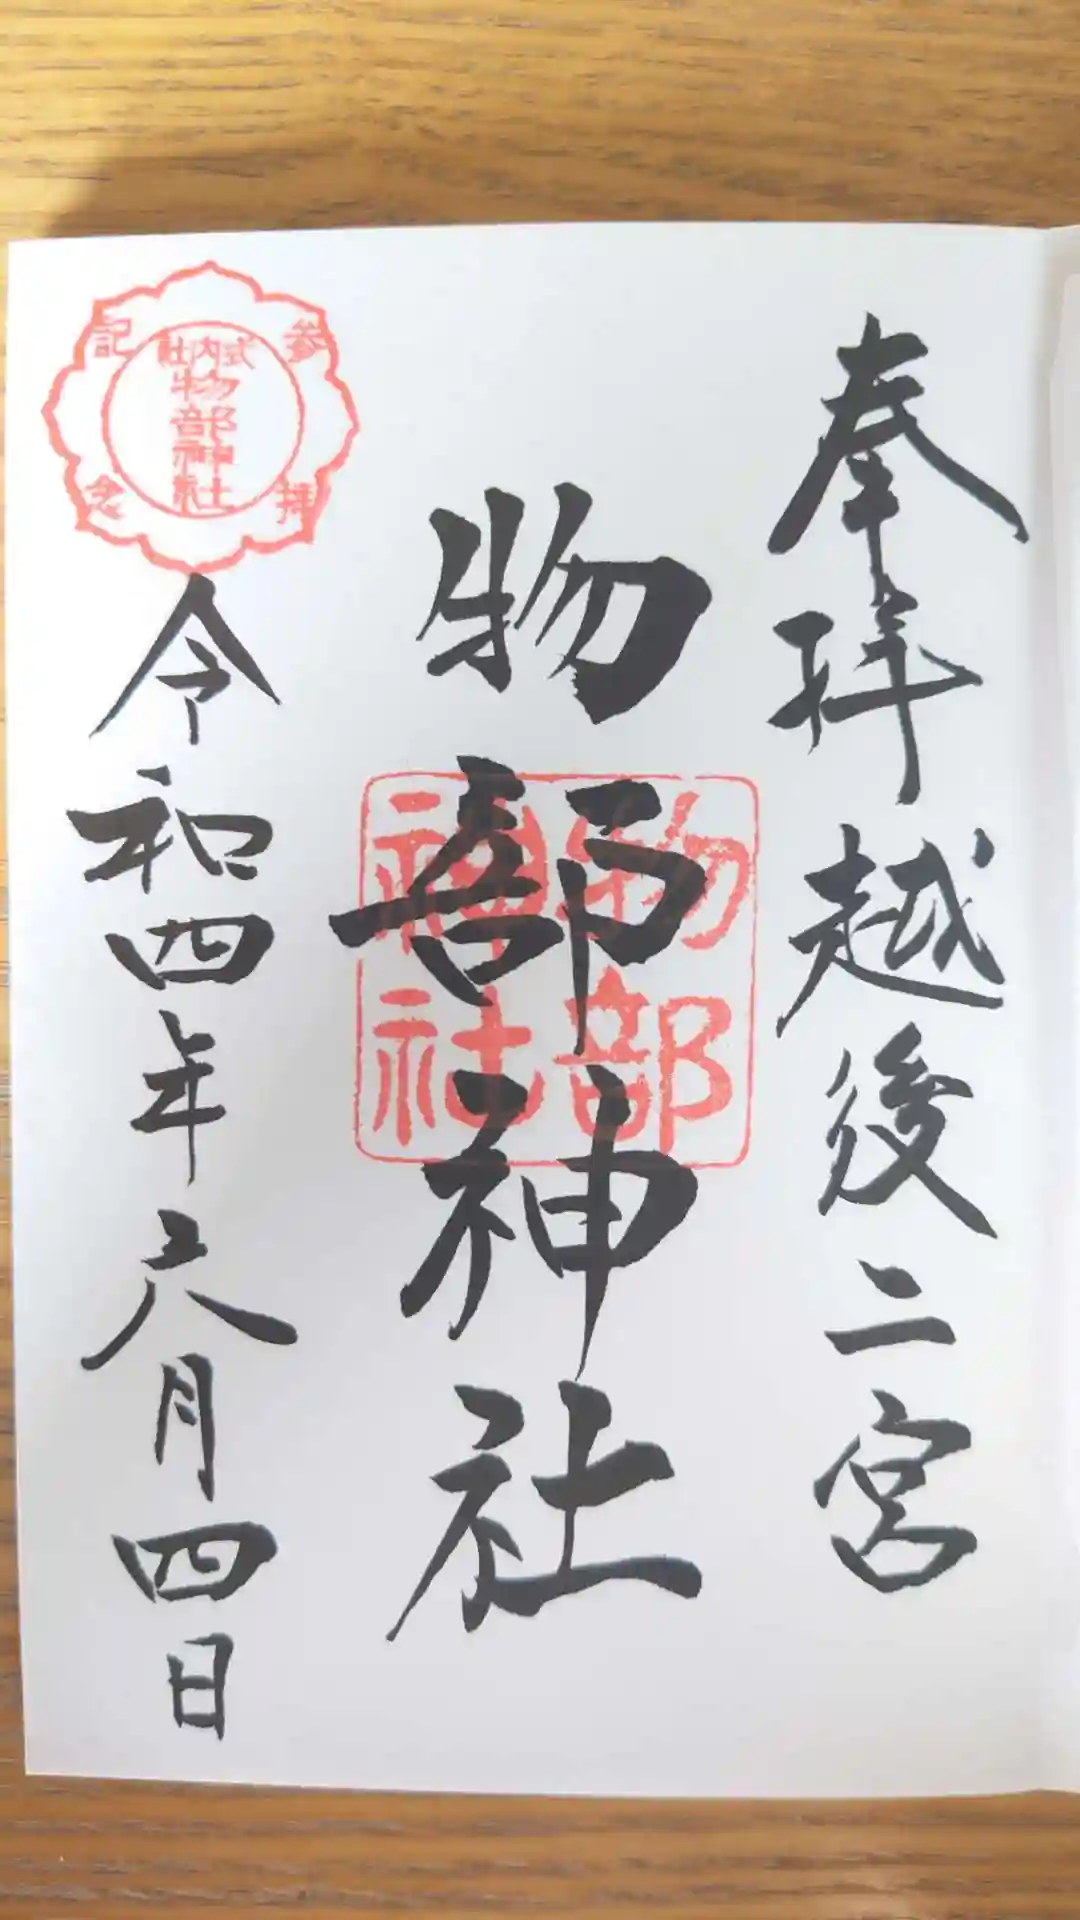 奉拝越後二宮
物部神社
物部
神社
参拝
記念
式内社
物部神社
令和四年六月四日